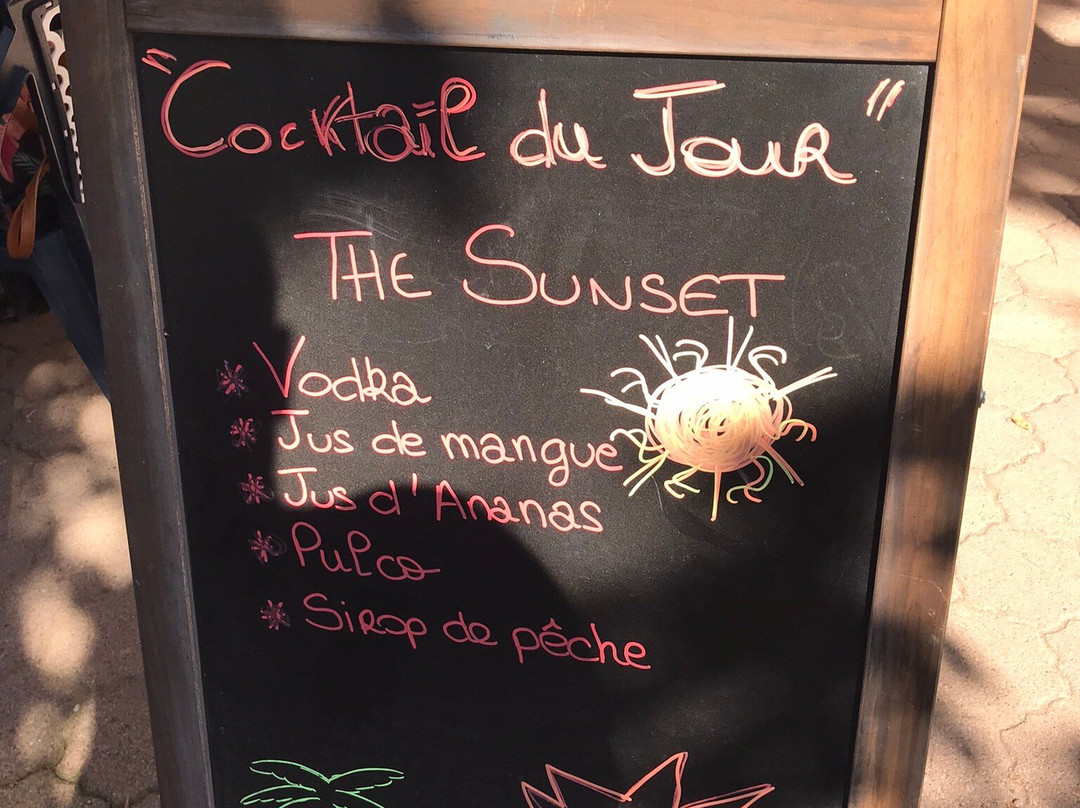 "Cocktail du Jour"
THE SUNSET
* Vodka
* Jus de mangue
* Jus d'Ananas
* Pulco
* Sirop de pêche